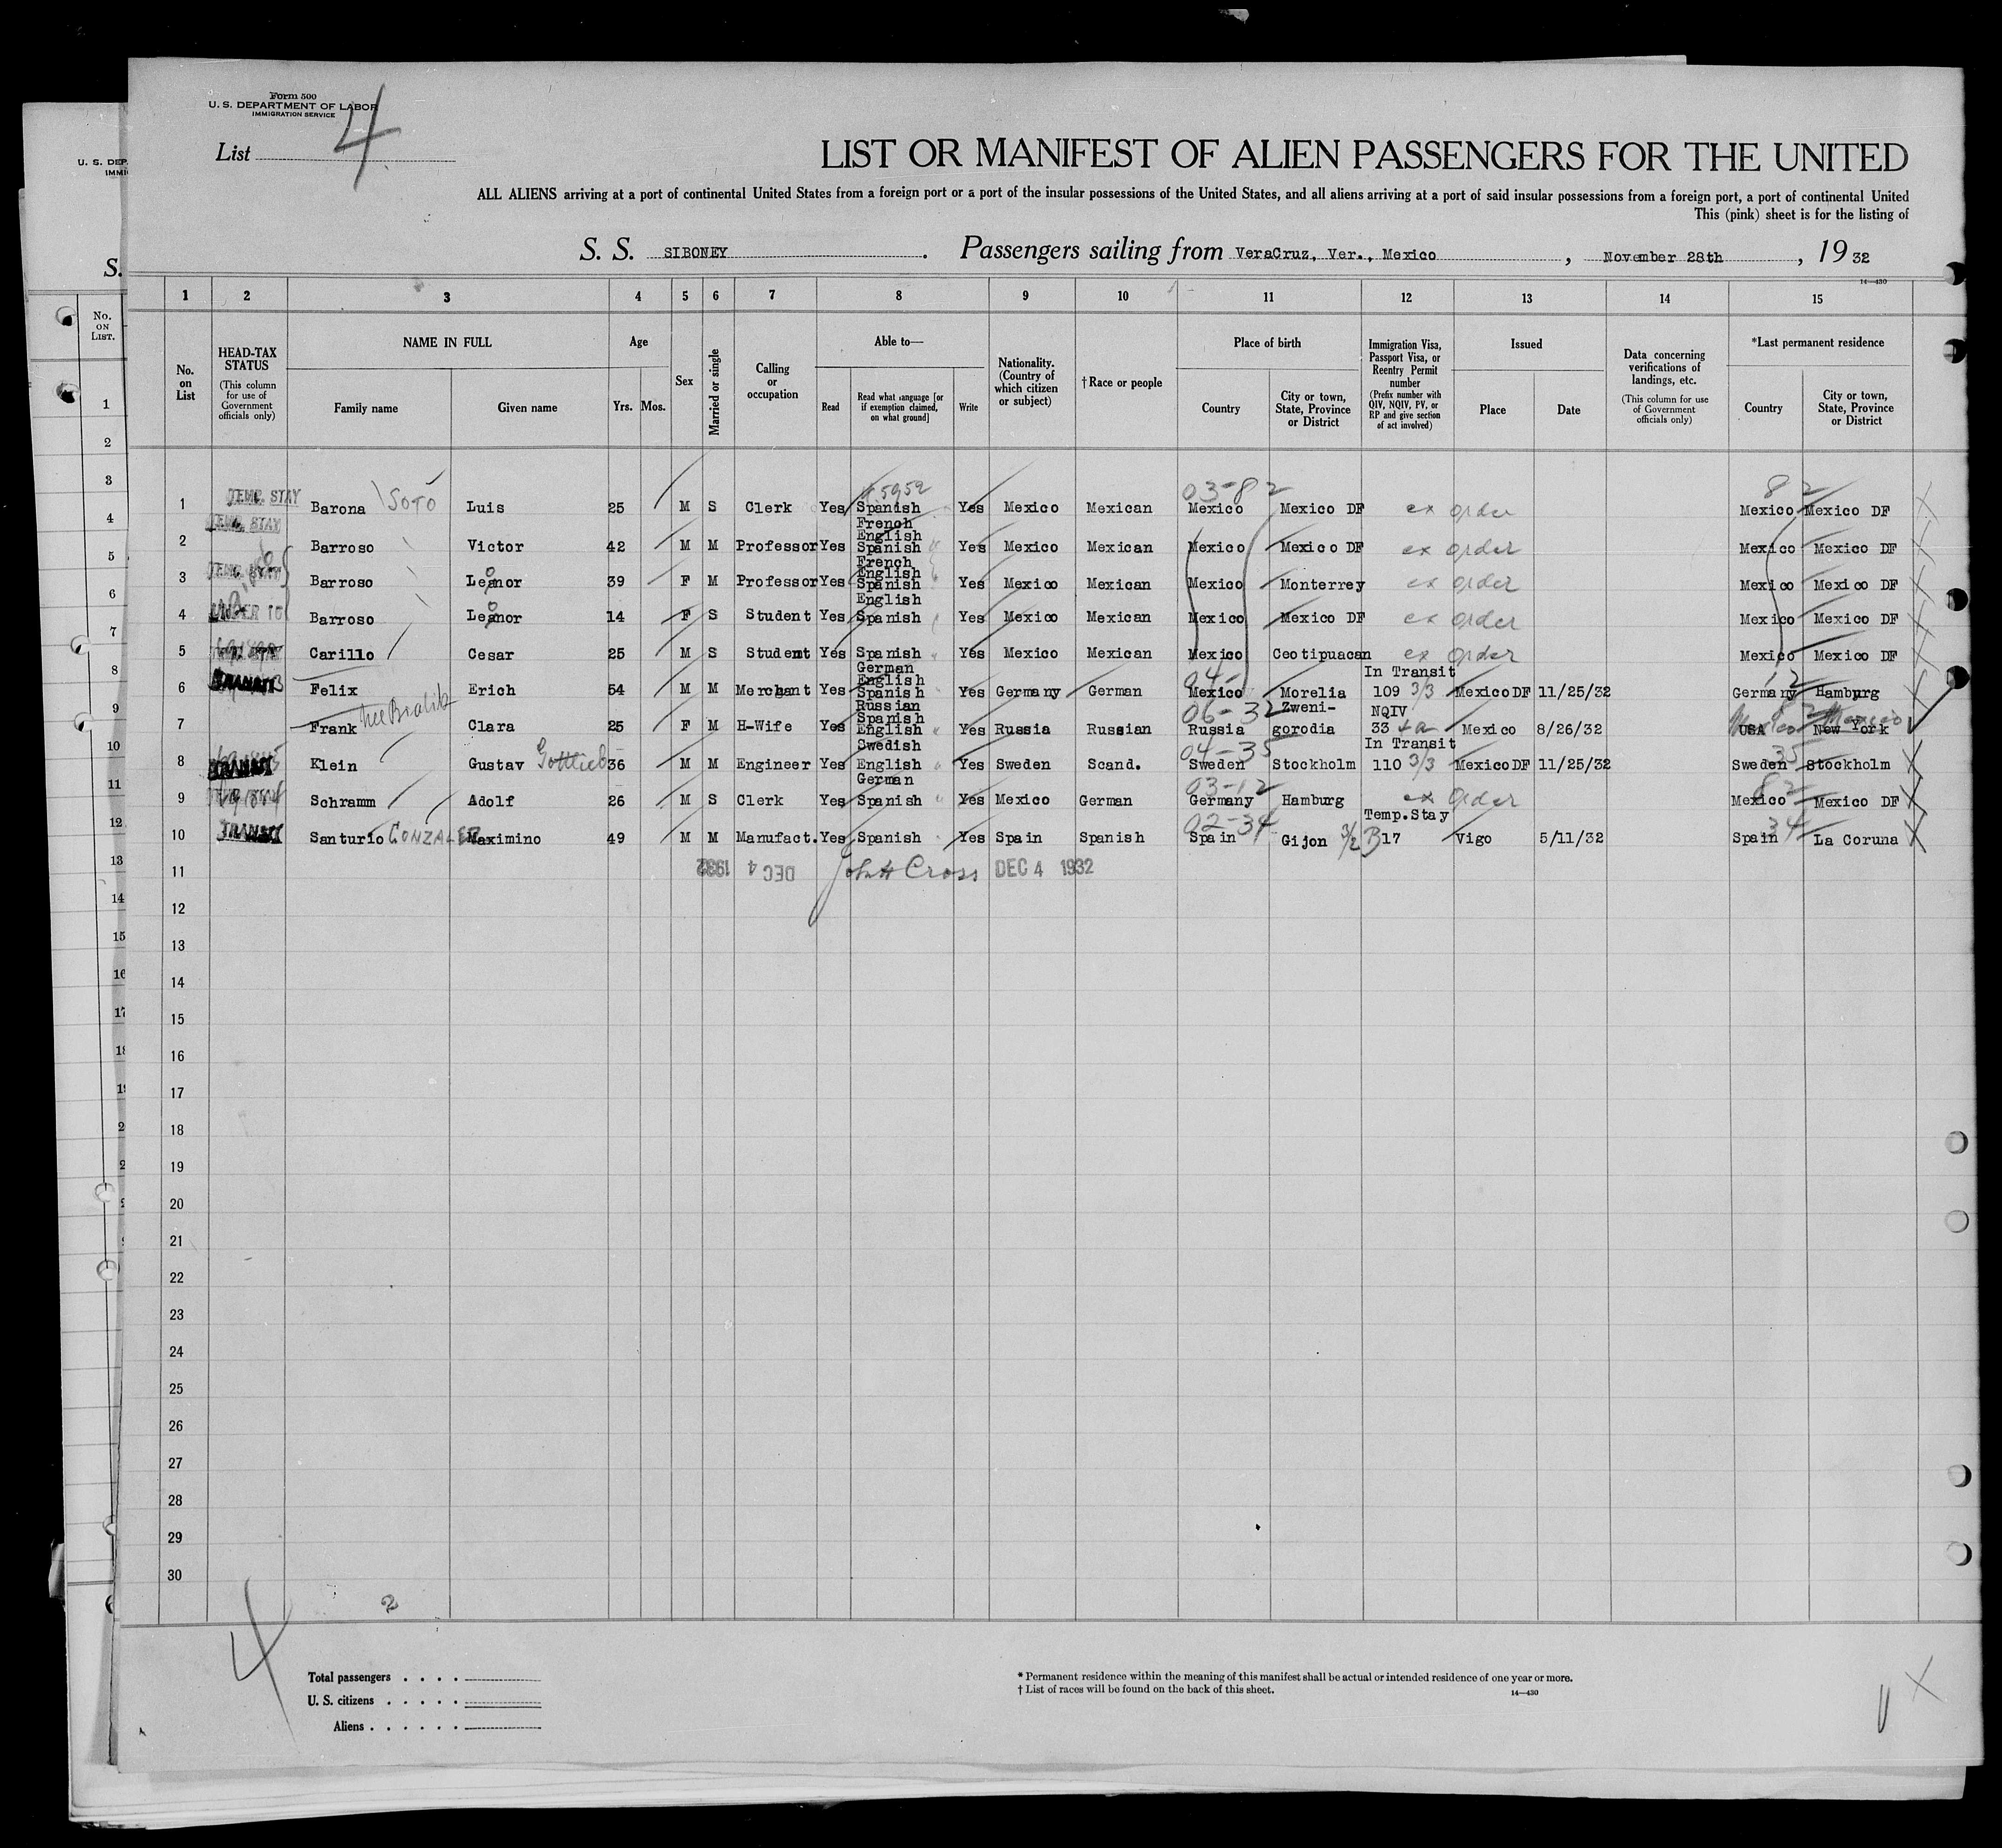 Form 500
U. S. DEPARTMENT OF LABOR
IMMIGRATION SERVICE
List 4
LIST OR MANIFEST OF ALIEN PASSENGERS FOR THE UNITED
ALL ALIENS arriving at a port of continental United States from a foreign port or a port of the insular possessions of the United States, and all aliens arriving at a port of said insular possessions from a foreign port, a port of continental United
This (pink) sheet is for the listing of
S. S. SIBONEY. Passengers sailing from VeraCruz, Ver., Mexico, November 28th, 1932
14—430
1 2 3 4 5 6 7 8 9 10 11 12 13 14 15
No. on List
HEAD-TAX STATUS
(This column for use of Government officials only)
NAME IN FULL
Family name
Given name
Age
Yrs. Mos.
Sex
Married or single
Calling or occupation
Able to—
Read
Read what language [or if exemption claimed, on what ground]
Write
Nationality. (Country of which citizen or subject)
† Race or people
Place of birth
Country
City or town, State, Province or District
Immigration Visa, Passport Visa, or Reentry Permit number
(Prefix number with QIV, NQIV, PV, or RP and give section of act involved)
Issued
Place
Date
Data concerning verifications of landings, etc.
(This column for use of Government officials only)
*Last permanent residence
Country
City or town, State, Province or District
TEMP. STAY 5952 03-82 82
1 Barona SOTO Luis 25 M S Clerk Yes Spanish Yes Mexico Mexican Mexico Mexico DF ex order Mexico Mexico DF
TEMP. STAY French
English
2 Barroso Victor 42 M M Professor Yes Spanish Yes Mexico Mexican Mexico Mexico DF ex order Mexico Mexico DF
French
TEMP. STAY English
3 Barroso Leonor 39 F M Professor Yes Spanish Yes Mexico Mexican Mexico Monterrey ex order Mexico Mexico DF
UNDER 16 English
4 Barroso Leonor 14 F S Student Yes Spanish Yes Mexico Mexican Mexico Mexico DF ex order Mexico Mexico DF
5 Carillo Cesar 25 M S Student Yes Spanish Yes Mexico Mexican Mexico Ceotipuacan ex order Mexico Mexico DF
German
English In Transit
6 TRANSIT Felix Erich 54 M M Merchant Yes Spanish Yes Germany German Mexico Morelia 109 3/3 MexicoDF 11/25/32 Germany Hamburg
Russian
Spanish 06-32 Zweni- NQIV
7 Frank nee Bialik Clara 25 F M H-Wife Yes English Yes Russia Russian Russia gorodia 33 4a Mexico 8/26/32 USA New York Mexico Mexico
Swedish 04-35 In Transit 35
8 TRANSIT Klein Gustav Gottlieb 36 M M Engineer Yes English Yes Sweden Scand. Sweden Stockholm 110 3/3 MexicoDF 11/25/32 Sweden Stockholm
German 03-12 82
9 Schramm Adolf 26 M S Clerk Yes Spanish Yes Mexico German Germany Hamburg ex order Mexico Mexico DF
02-34 Temp.Stay 34
10 TRANSIT Santuric GONZALEZ Maximino 49 M M Manufact. Yes Spanish Yes Spain Spanish Spain Gijon 3/2 B 17 Vigo 5/11/32 Spain La Coruna
11 DEC 4 1932 John H Cross DEC 4 1932
12
13
14
15
16
17
18
19
20
21
22
23
24
25
26
27
28
29
30
2
4
Total passengers
U. S. citizens
Aliens
* Permanent residence within the meaning of this manifest shall be actual or intended residence of one year or more.
† List of races will be found on the back of this sheet.
14—430